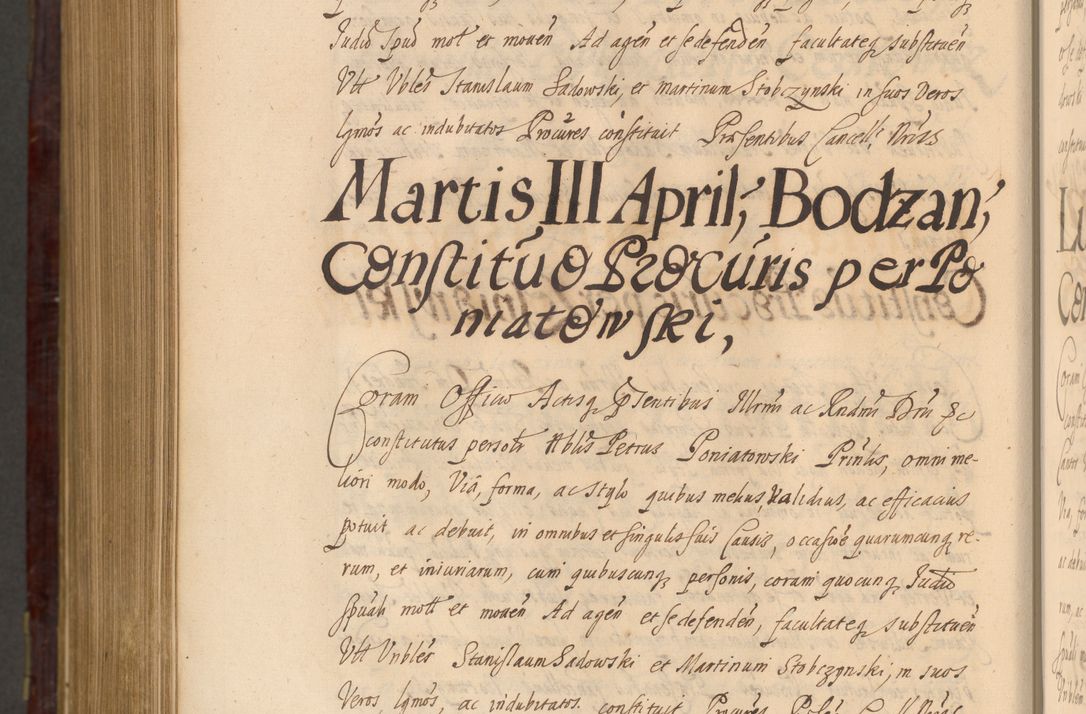 Judiō Spuō mōt et movēn Ad agēn et se defendēn facultateq̃ substituēn
Vtt Vbles Stanislaum Sadowski, et martinum Stobczynski in suos Veros
lgmōs ac indubitatos Procūres cōnstituit Præsentibus Cancell: Nrīs
Martis III April; Bodzan;
Constitūo Procūris per Po
niatowski,
Coram Officio Actisq̃ p̃sentibus Illrmi ac Rndmi Dni &c
constitutus persolr Nblis Petrus Poniatowski Prinlis, omni me-
liori modo, Via, forma, ac stylo quibus melius, validius, ac efficacius
potuit ac debuit, in omnibus et singulis suis Causis, occasiōe quarumcunq̃ re-
rum, et iniuriarum, cum quibuscunq̃ personis, coram quocunq̃ Judiō
Spūali mōtt et movēn Ad agēn et se defendēn, facultateq̃ substituēn
Vtt Vnbles Stanislaum Sadowski et Martinum Stobczynski, in suos
Veros lgmōs, ac indubitatos. constituit Procures